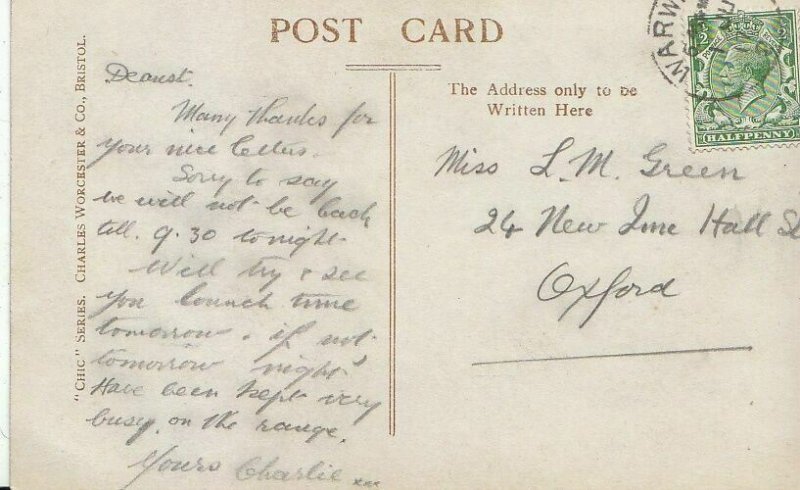 POST CARD
"CHIC" SERIES. CHARLES WORCESTER & CO., BRISTOL.
Dearest.
Many thanks for
your nice letters.
Sorry to say
we will not be back
till 9.30 tonight
Will try & see
you lounch time
tomorrow. if not
tomorrow night
Have been kept very
busy on the range.
Yours Charlie xxx
The Address only to be
Written Here
WARW
½
HALFPENNY
Miss L. M. Green
24 New Inn Hall St
Oxford